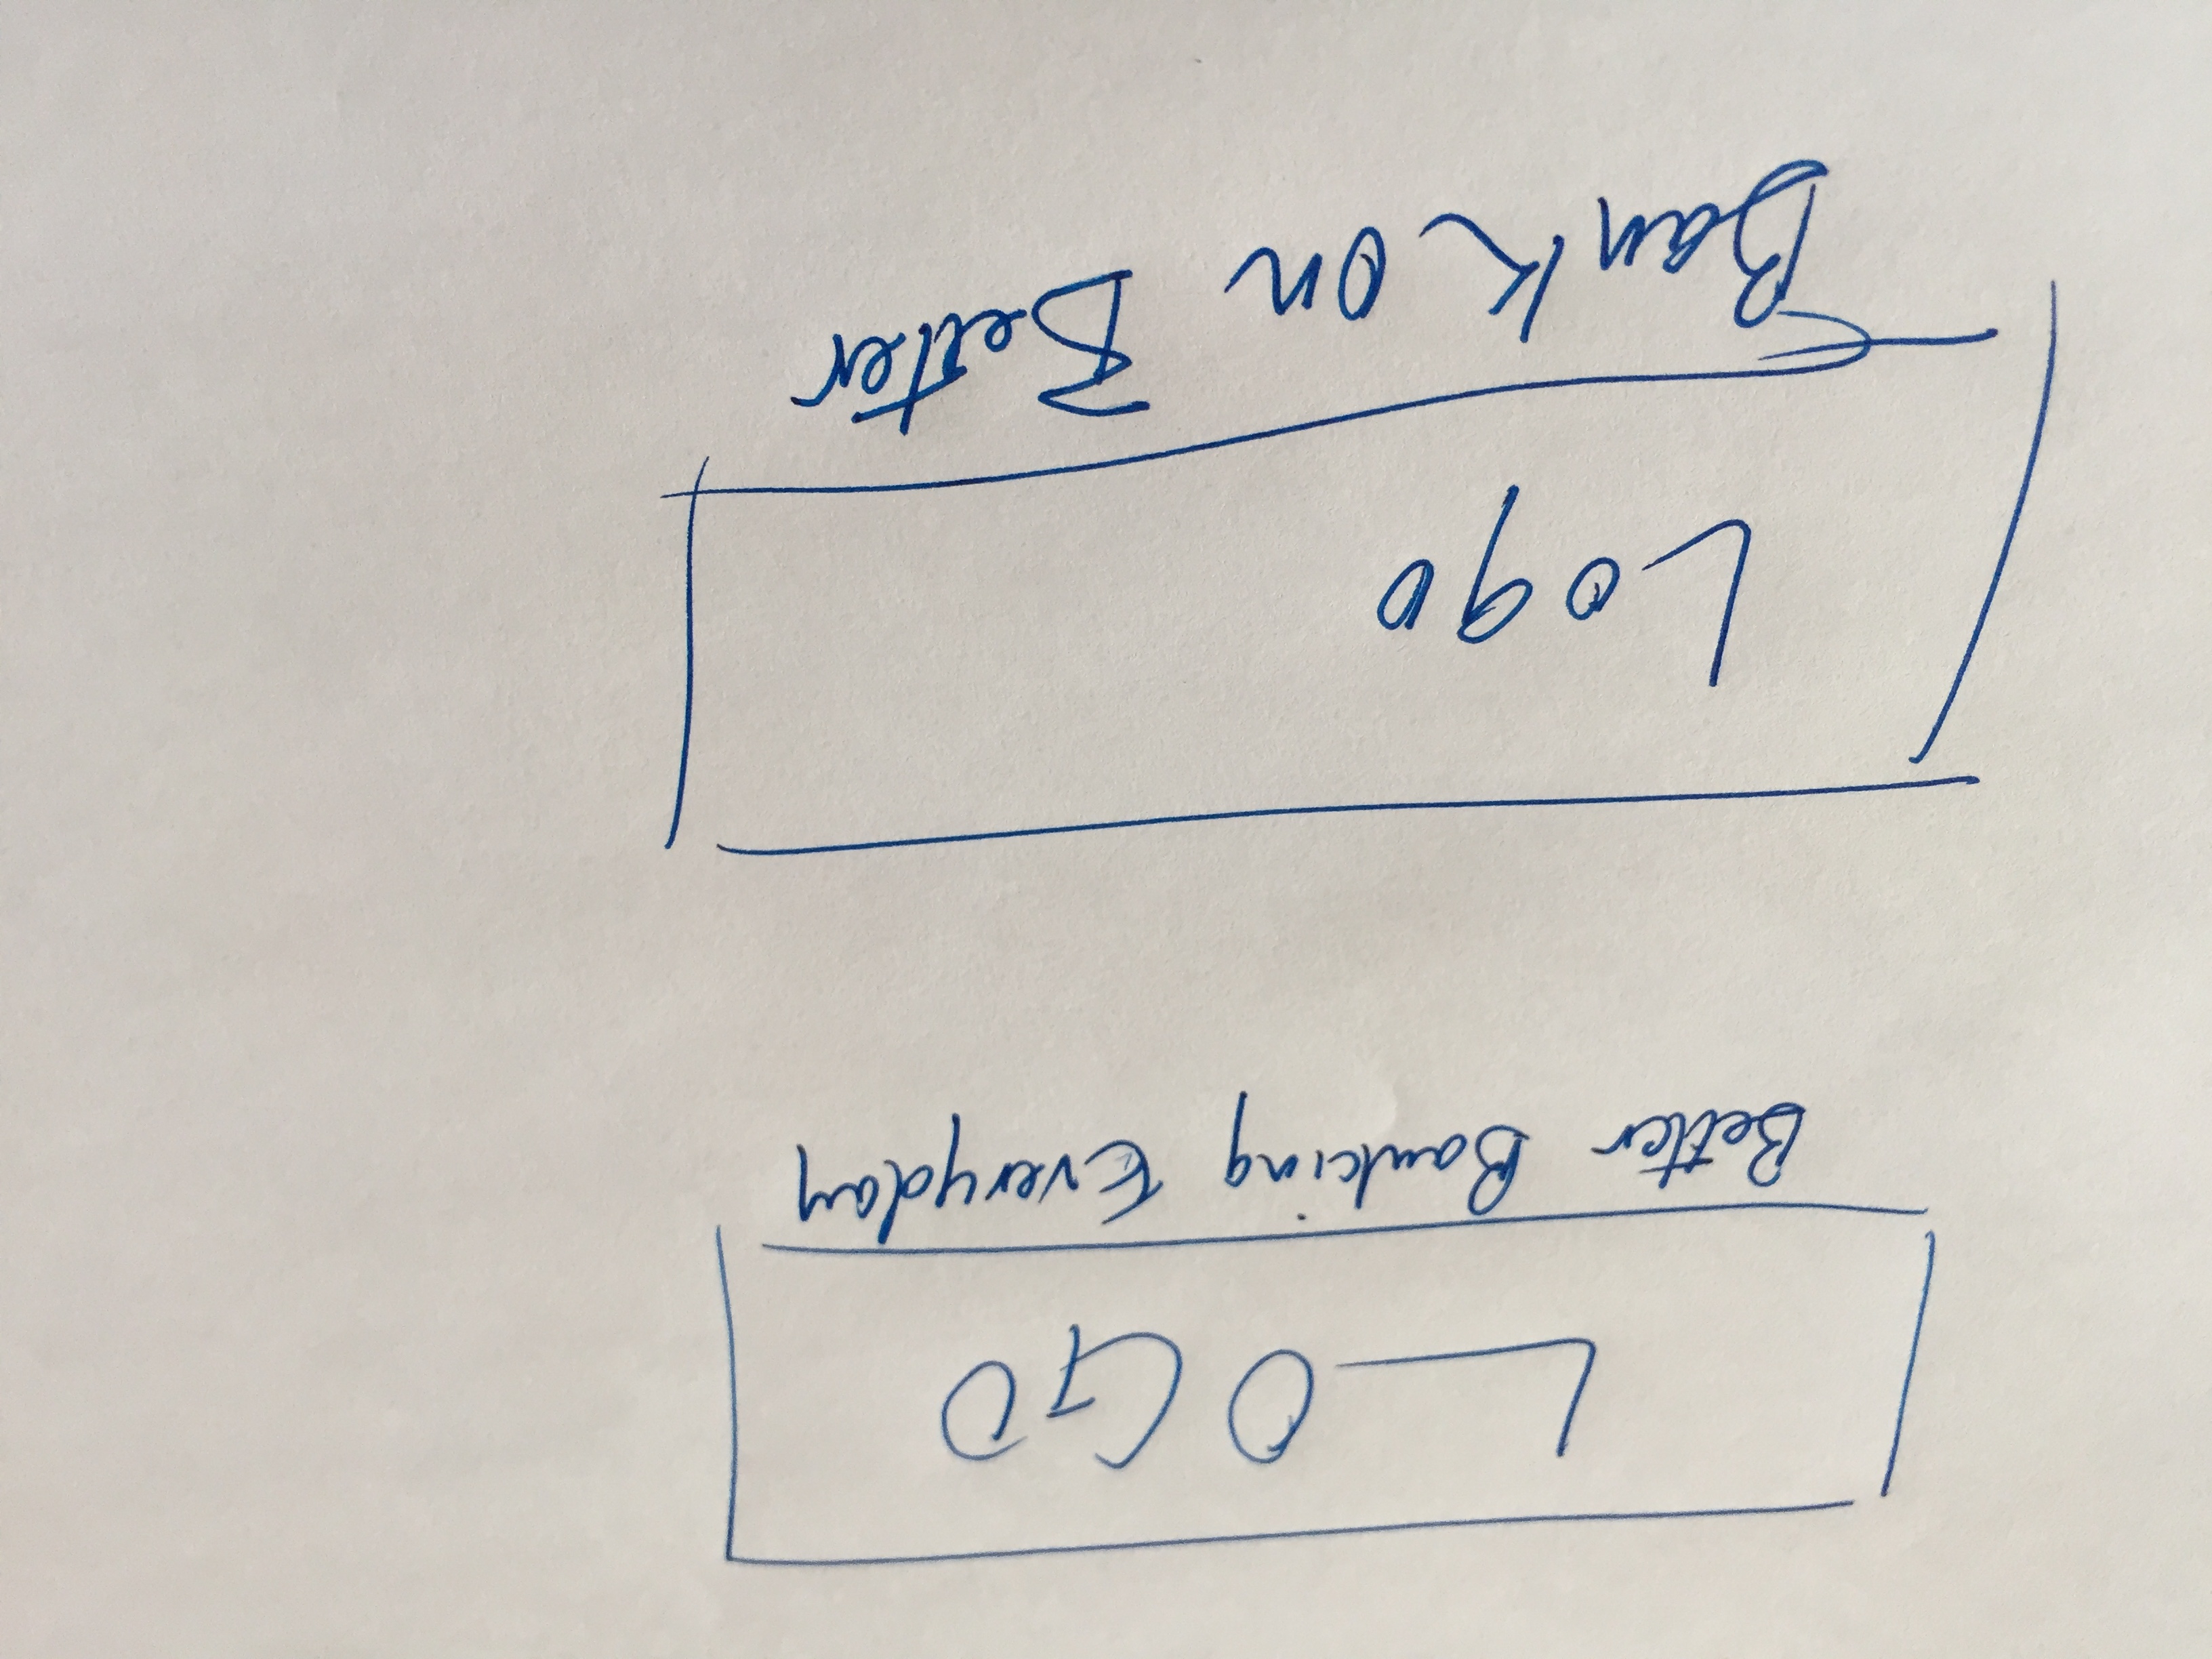 LOGO
Better Banking Everyday
Logo
Bank on Better